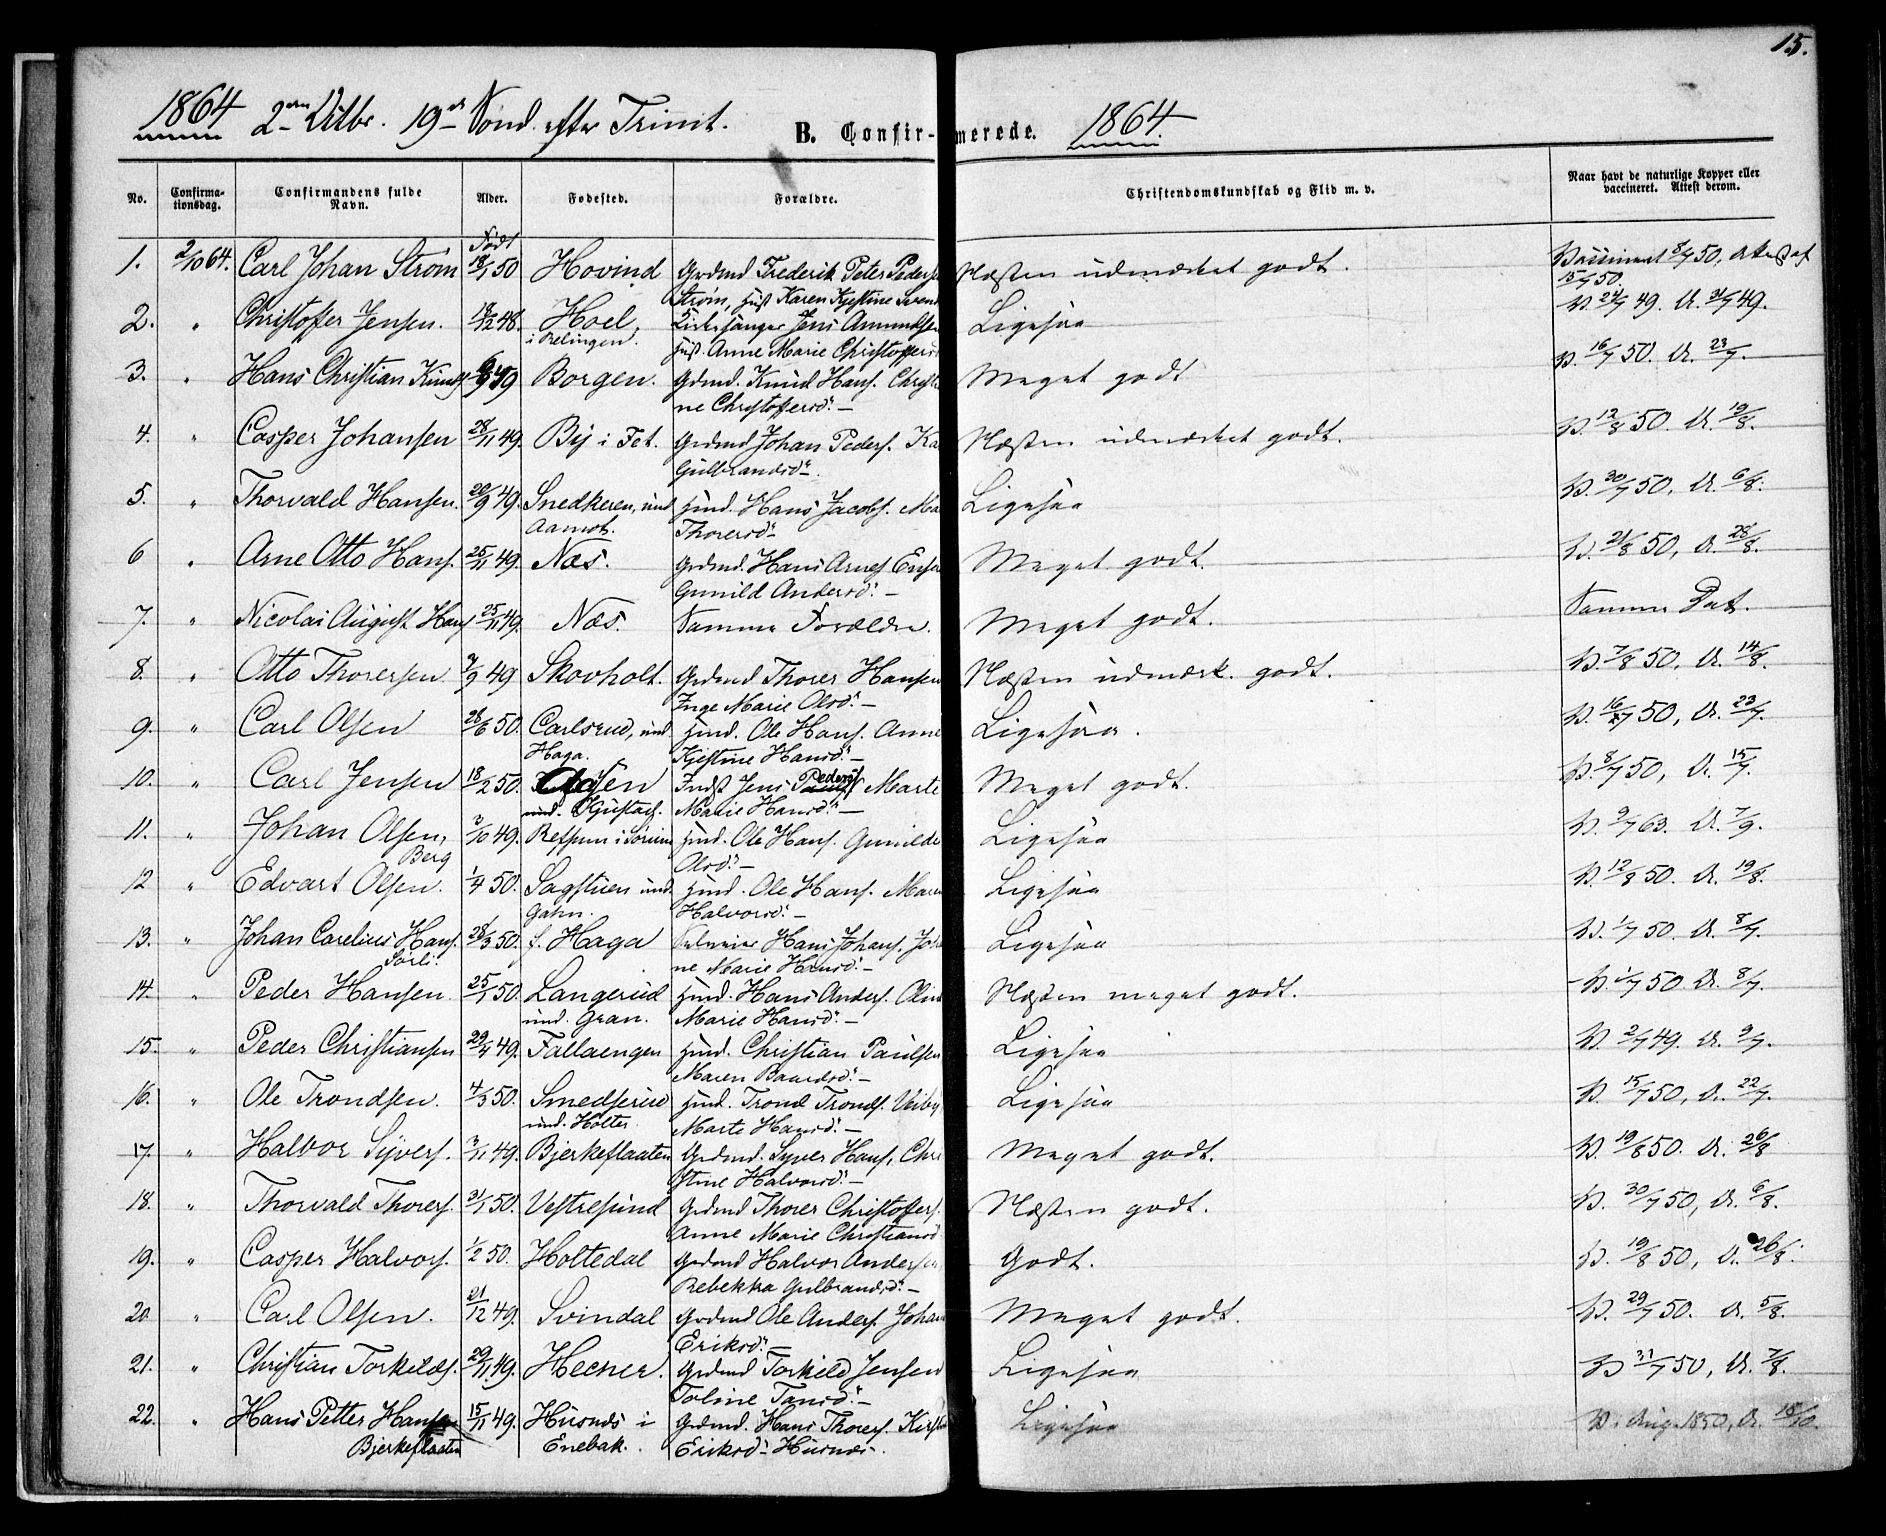 15.
1864 2den Octbr. 19de Sönd. efter Trinit. B. Confir- merede. 1864.
No. Confirma- tionsdag. Confirmandens fulde Navn. Alder. Fødested. Forældre. Christendomskundskab og Flid m. v. Naar havt de naturlige Kopper eller vaccineret. Attest derom.
Født
1. 2/10 64. Carl Johan Strøm 18/1 50 Hovind Grdmd Frederik Peter Peders Næsten udmærket godt. Vaccineret 8/7 50, Attest af 15/7 50.
Strøm, Hust Karen Kjestine Svend
2. " Christoffer Jensen. 19/12 48. Hoel, Kirkesanger Jens Amundsen Ligesaa V. 24/7 49. A. 31/7 49.
i Relingen. Hust. Anne Marie Christoffersd
3. " Hans Christian Knuds 6/9 49 Borgen. Grdmd. Knud Hans. Christi Meget godt V. 16/7 50. A. 23/7.
ne Christoffersd: –
4. " Casper Johansen 28/11 49. By i Fet. Grdmd Johan Peders. Ka Næsten udmærket godt. V. 12/8 50. A. 19/8.
Gulbrandsd: –
5. " Thorvald Hansen. 20/9 49. Snedkeren, und Husmd. Hans Jacobs. Ma Ligesaa V. 30/7 50, A. 6/8.
Aamot. Thorersd: –
6 " Arne Otto Hans. 25/11 49. Næs. Grdmd. Hans Arnes Meget godt. V. 21/8 50, A. 28/8.
Gunild Andersd: –
7. " Nicolai August Hans 25/11 49. Næs. Samme Forældre. Meget godt. Samme Dat.
8. " Otto Thorersen. 9/9 49 Skovholt. Grdmd Thorer Hansen Næsten udmærk. godt. V. 7/8 50, A. 14/8.
Inge Marie Olsd: –
9. " Carl Olsen 28/6 50. Carlsrud, und Husmd. Ole Hans. Anne Ligesaa. V. 16/7 50, A. 23/7.
Haga. Kjestine Hansd: –
10. " Carl Jensen 18/2 50. Indst Jens Peders Marte Meget godt. V. 8/7 50, A. 15/7.
und. Marie Hansd: –
11. " Johan Olsen, 3/10 49. Refsum i Sørum Husmd. Ole Hans. Gunilde Ligesaa V. 9/7 63. A. 7/9.
Berg Olsd: –
12 " Edvart Olsen. 1/4 50. Sagstuen und Husmd. Ole Hans. Maren Ligesaa V. 12/8 50. A. 19/8.
Gahn. Halvorsd: –
13. " Johan Carelius Hans. 28/3 50. f. Haga Selveier Hans Johans. Joh Ligesaa V. 1/7 50. A. 8/7.
Sørli. ne Marie Hansd: –
14. " Peder Hansen. 25/1 50. Langerud Husmd. Hans Anders. Olin Næsten meget godt. V. 1/7 50. A. 8/7.
und. Gran. Marie Hansd: –
15. " Peder Christiansen 29/4 49. Fallaengen Husmd. Christian Paulsen Ligesaa V. 2/7 49. A. 9/7.
Maren Baardsd: –
16. " Ole Trondsen. 4/3 50. Smedserud Husmd. Trond Tronds. Ligesaa V. 15/7 50, A. 22/7.
und. Holter. Marte Hansd: –
17. " Halvor Syvers. 3/11 49. Bjerkeflaaten Grdmd. Syver Hans, Chri Meget godt. V. 19/8 50. A. 26/8
stine Halvorsd: –
18. " Thorvald Thorers. 31/1 50. Vestresund Grdmd Thorer Christoffers. Næsten godt. V. 30/7 50, A. 6/8.
Anne Marie Christiansd
19. " Casper Halvors. 1/2 50. Holtedal Grdmd Halvor Andersen Godt. V. 19/8 50, A. 26/8.
Rebekka Gulbrandsd: –
20. " Carl Olsen. 21/12 49. Svindal Grdmd Ole Anders. Johan Meget godt. V. 29/7 50. A. 5/8.
Eriksd: –
21. " Christian Torkilds. 29/11 49. Heener. Grdmd Torkild Jensen Ligesaa V 31/7 50, A. 7/8.
Toline Tansd: –
22. " Hans Petter Hansen 15/11 49. Husnæs i Grdmd. Hans Thores. Kirst Ligesaa V. Aug. 1850, A. 18/10.
Bjerkeflaaten Enebak. Eriksd: Husnæs.